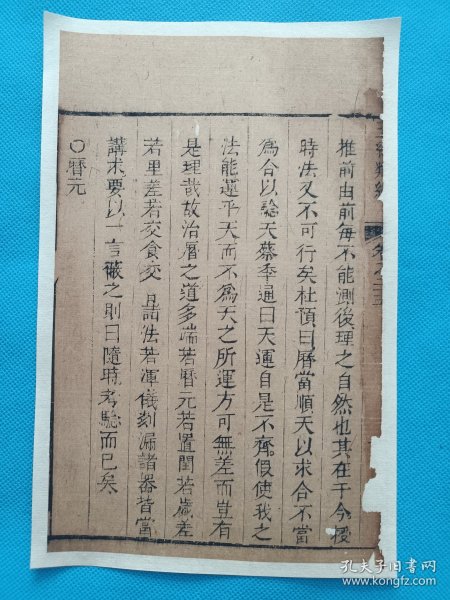 推前由前每不能測後理之自然也其在于今授
時法又不可行矣杜預曰曆當順天以求合不當
爲合以驗天蔡季通曰天運自是不齊假使我之
法能運乎天而不爲天之所運方可無差而豈有
是理哉故治曆之道多端若曆元若置閏若歲差
若里差若交食交 諸法若渾儀刻漏諸器皆當
講求要以一言蔽之則曰隨時考驗而已矣
○曆元
孔夫子旧书网
www.kongfz.com